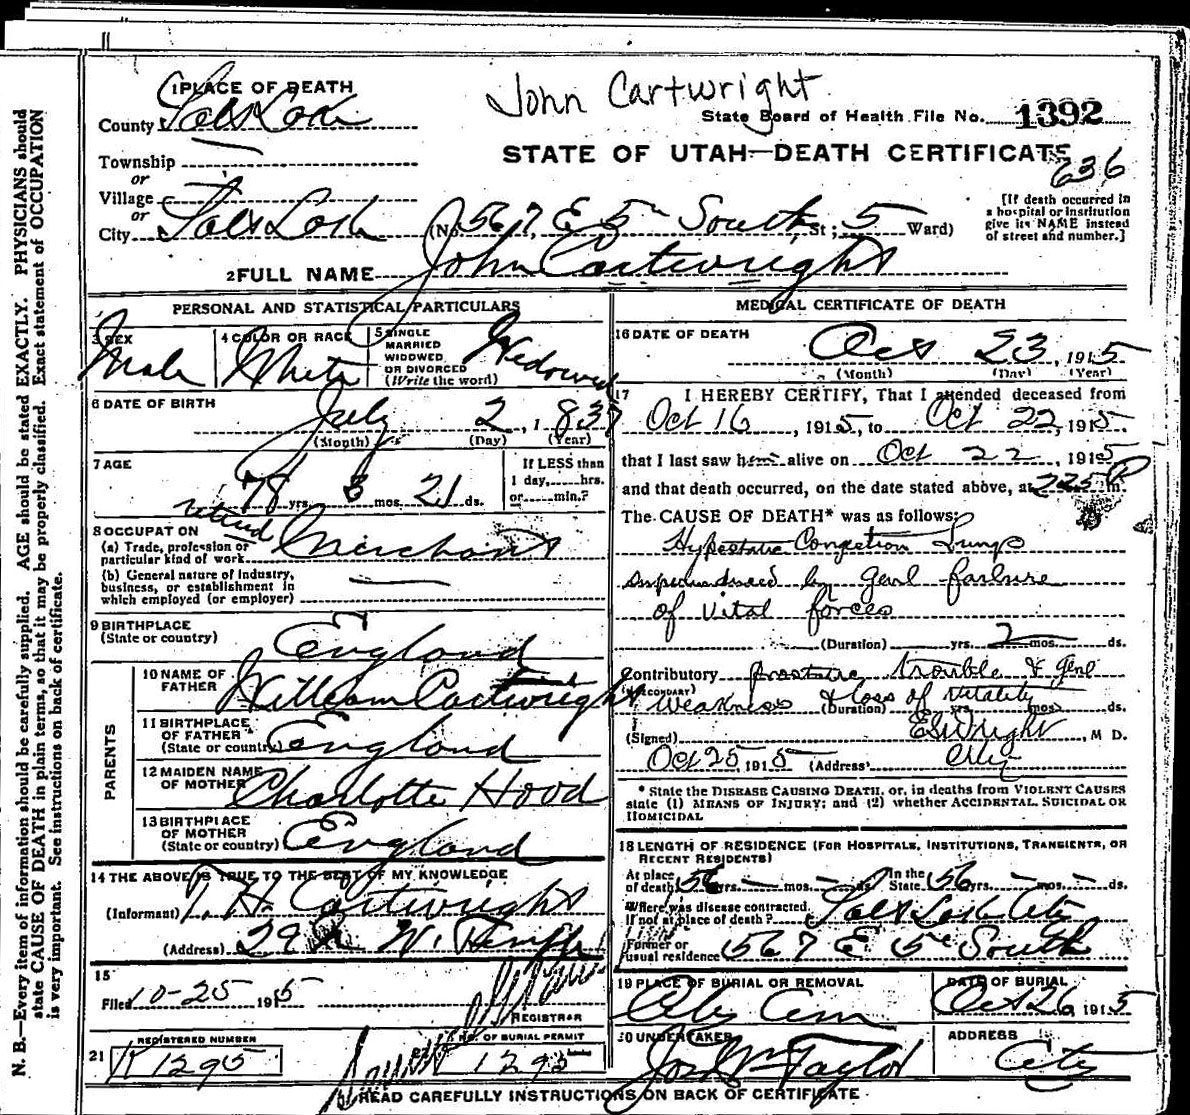 John Cartwright
1 PLACE OF DEATH
State Board of Health File No. 1392
County Salt Lake
STATE OF UTAH—DEATH CERTIFICATE
636
Township
or
Village
or
City Salt Lake (No. 567 E 5th South St; 5 Ward)
[If death occurred in
a hospital or institution
give its NAME instead
of street and number.]
2 FULL NAME John Cartwright
PERSONAL AND STATISTICAL PARTICULARS
3 SEX
Male
4 COLOR OR RACE
White
5 SINGLE
MARRIED
WIDOWED
OR DIVORCED
(Write the word)
Widowed
6 DATE OF BIRTH
July 2, 1837
(Month) (Day) (Year)
7 AGE
78 yrs. 3 mos. 21 ds.
If LESS than
1 day,......hrs.
or......min.?
8 OCCUPATION
(a) Trade, profession or
particular kind of work
retired Merchant
(b) General nature of industry,
business, or establishment in
which employed (or employer)
9 BIRTHPLACE
(State or country)
England
PARENTS
10 NAME OF
FATHER
William Cartwright
11 BIRTHPLACE
OF FATHER
(State or country)
England
12 MAIDEN NAME
OF MOTHER
Charlotte Hood
13 BIRTHPLACE
OF MOTHER
(State or country)
England
14 THE ABOVE IS TRUE TO THE BEST OF MY KNOWLEDGE
(Informant) T. H. Cartwright
(Address) W.
15
Filed 10-25 1915
REGISTRAR
21
REGISTERED NUMBER
K 1295
NO. OF BURIAL PERMIT
1295
MEDICAL CERTIFICATE OF DEATH
16 DATE OF DEATH
Oct 23, 1915
(Month) (Day) (Year)
17 I HEREBY CERTIFY, That I attended deceased from
Oct 16, 1915, to Oct 22, 1915.
that I last saw him alive on Oct 22, 1915
and that death occurred, on the date stated above, at 225 P m.
The CAUSE OF DEATH* was as follows:
Hypostatic Congestion Lungs
superinduced by genl failure
of vital forces
(Duration) yrs. 2 mos. ds.
Contributory prostatic trouble & genl
(SECONDARY) weakness & loss of vitality
(Duration) yrs. mos. ds.
(Signed) E S Wright, M D.
Oct 25 1915 (Address) City
* State the DISEASE CAUSING DEATH, or, in deaths from VIOLENT CAUSES
state (1) MEANS OF INJURY; and (2) whether ACCIDENTAL, SUICIDAL OR
HOMICIDAL
18 LENGTH OF RESIDENCE (FOR HOSPITALS, INSTITUTIONS, TRANSIENTS, OR
RECENT RESIDENTS)
At place
of death 56 yrs. — mos. — ds. In the State 56 yrs. — mos. — ds.
Where was disease contracted.
If not at place of death? Salt Lake City
Former or
usual residence 567 E 5th South
19 PLACE OF BURIAL OR REMOVAL
City Cem
DATE OF BURIAL
Oct 26 1915
20 UNDERTAKER
Jos Wm Taylor
ADDRESS
City
READ CAREFULLY INSTRUCTIONS ON BACK OF CERTIFICATE
N. B.—Every item of information should be carefully supplied. AGE should be stated EXACTLY. PHYSICIANS should
state CAUSE OF DEATH in plain terms, so that it may be properly classified. Exact statement of OCCUPATION
is very important. See instructions on back of certificate.